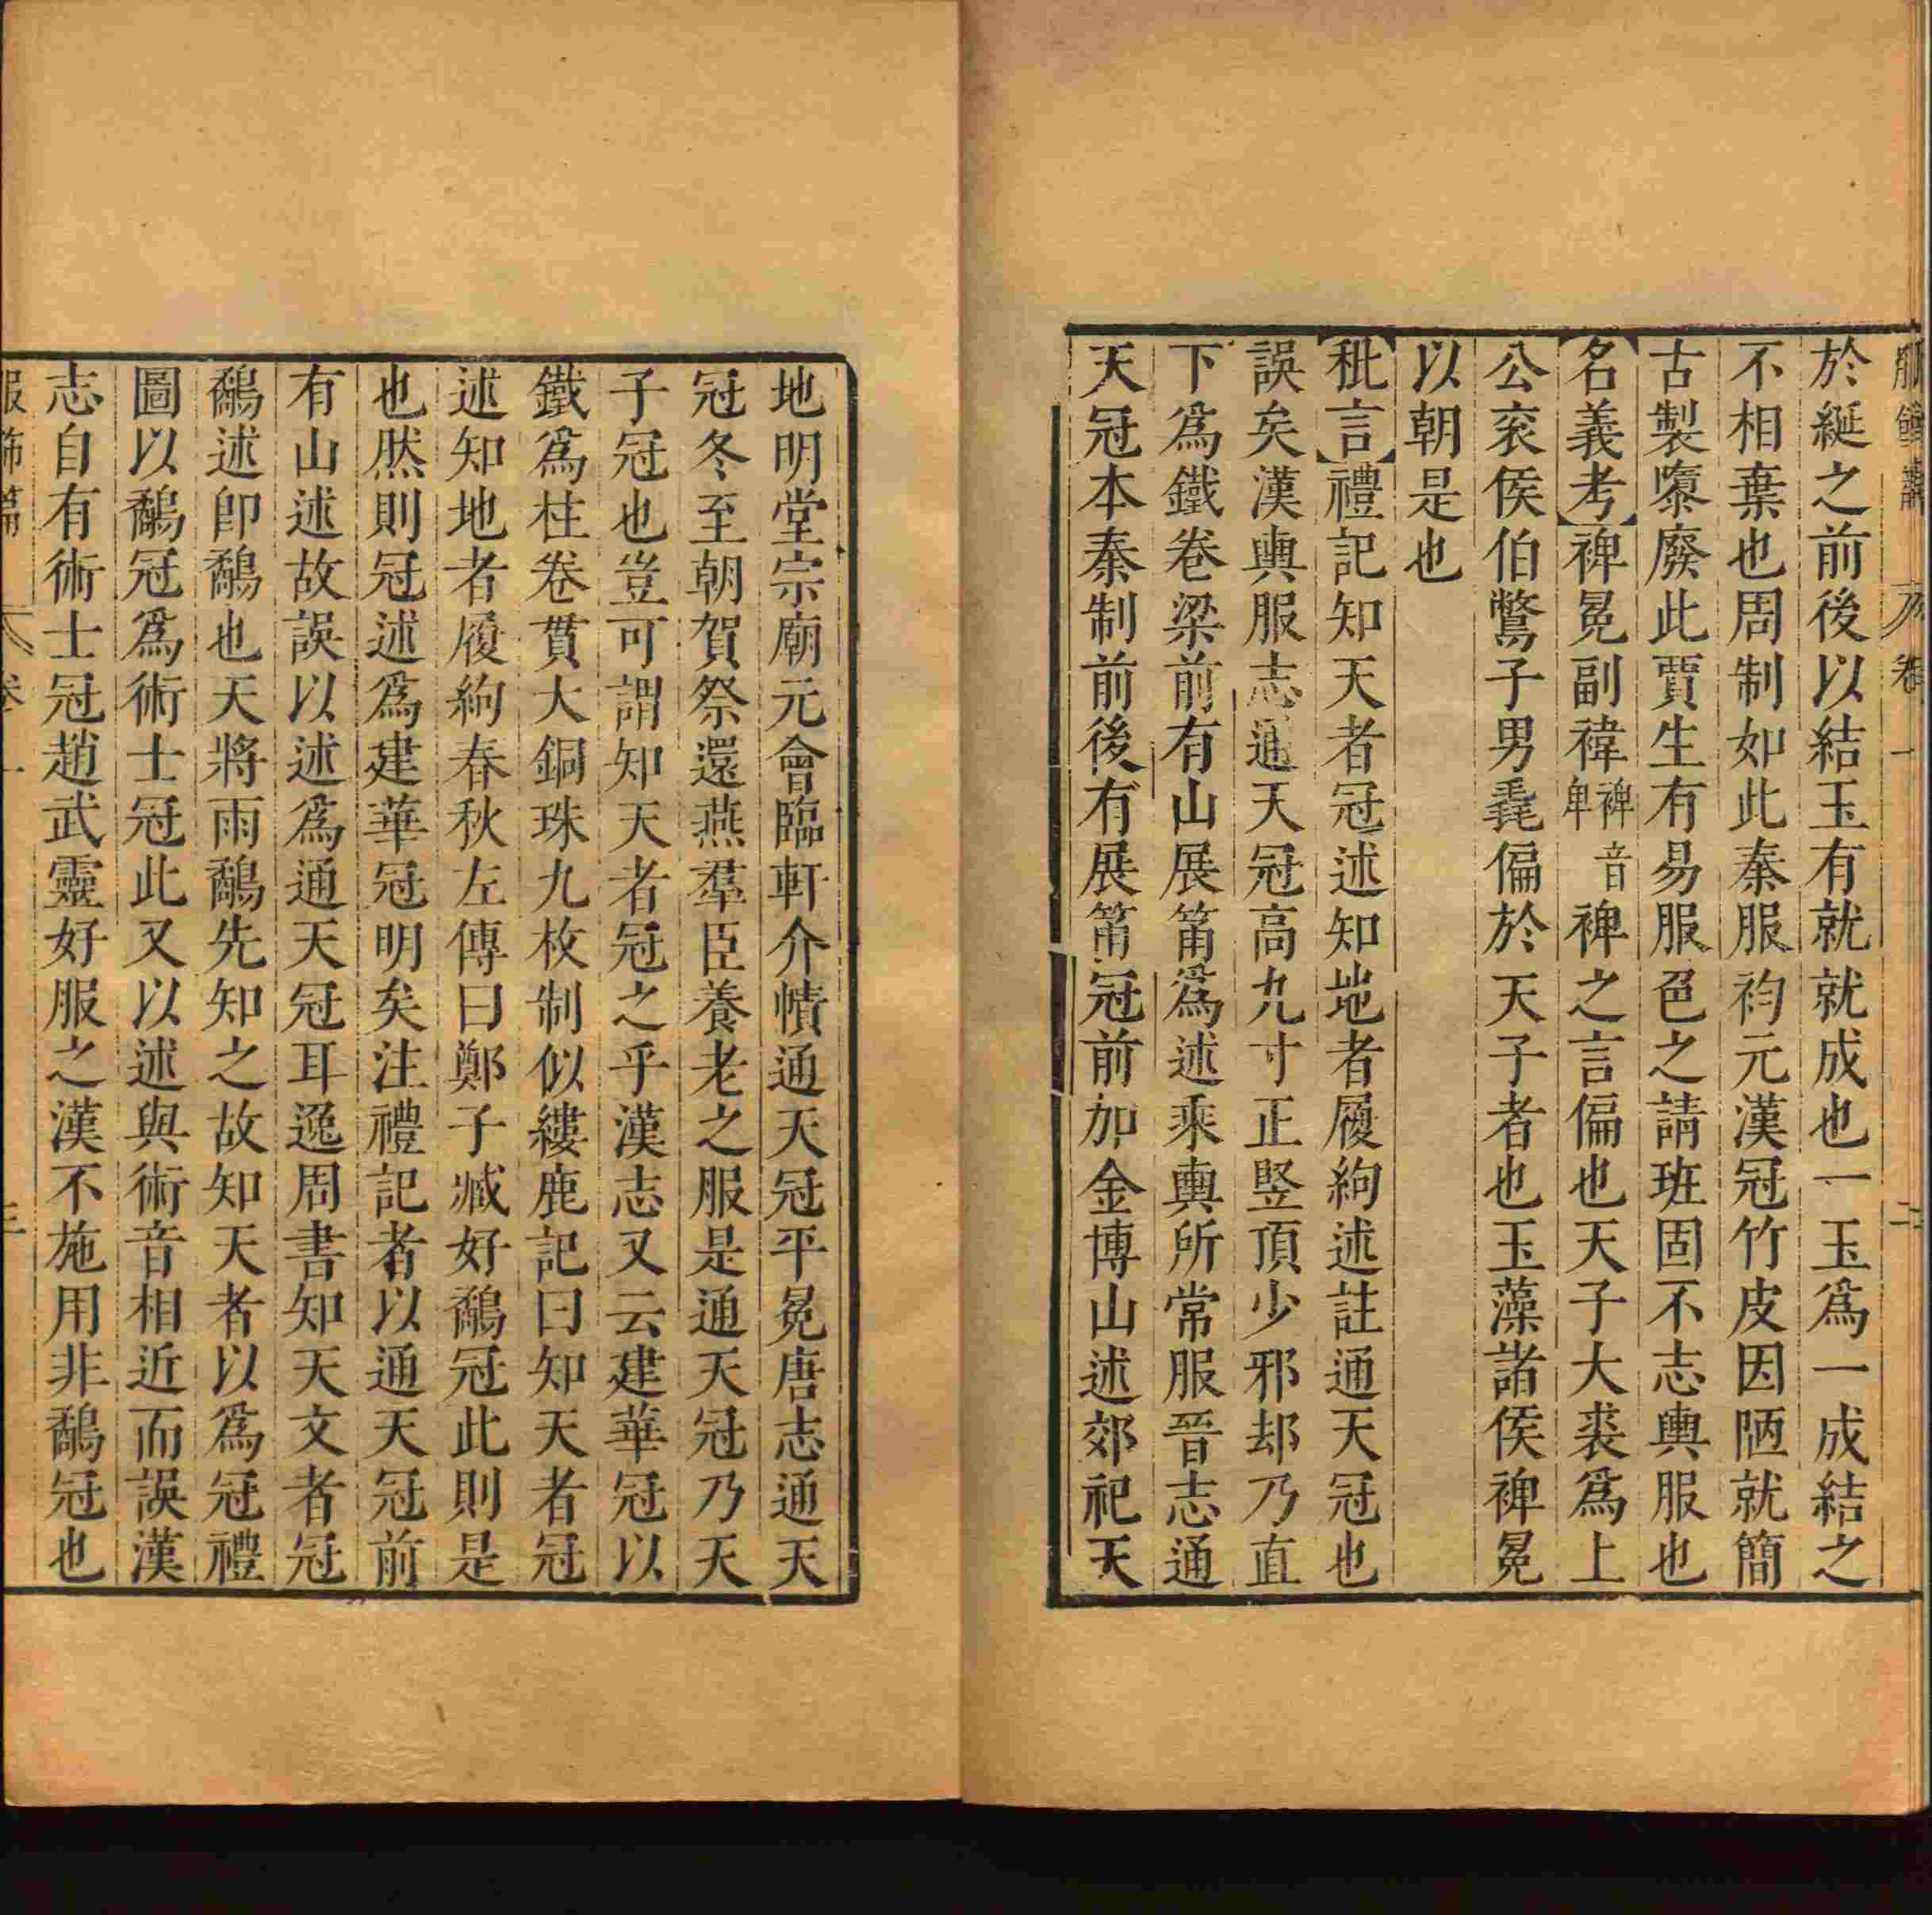 於綖之前後以結玉有就就成也一玉爲一成結之
不相棄也周制如此秦服袀元漢冠竹皮因陋就簡
古製隳廢此賈生有易服色之請班固不志輿服也
名義考裨冕副禕裨音卑裨之言偏也天子大裘爲上
公衮侯伯鷩子男毳偏於天子者也玉藻諸侯裨冕
以朝是也
秕言禮記知天者冠述知地者履絇述註通天冠也
誤矣漢輿服志通天冠高九寸正竪頂少邪却乃直
下爲鐵卷梁前有山展筩爲述乘輿所常服晉志通
天冠本秦制前後有展筩冠前加金博山述郊祀天
地明堂宗廟元會臨軒介幘通天冠平冕唐志通天
冠冬至朝賀祭還燕羣臣養老之服是通天冠乃天
子冠也豈可謂知天者冠之乎漢志又云建華冠以
鐵爲柱卷貫大銅珠九枚制似縷鹿記曰知天者冠
述知地者履絇春秋左傳曰鄭子臧好鷸冠此則是
也然則冠述爲建華冠明矣注禮記者以通天冠前
有山述故誤以述爲通天冠耳逸周書知天文者冠
鷸述卽鷸也天將雨鷸先知之故知天者以爲冠禮
圖以鷸冠爲術士冠此又以述與術音相近而誤漢
志自有術士冠趙武靈好服之漢不施用非鷸冠也
服飾篇 卷一 三